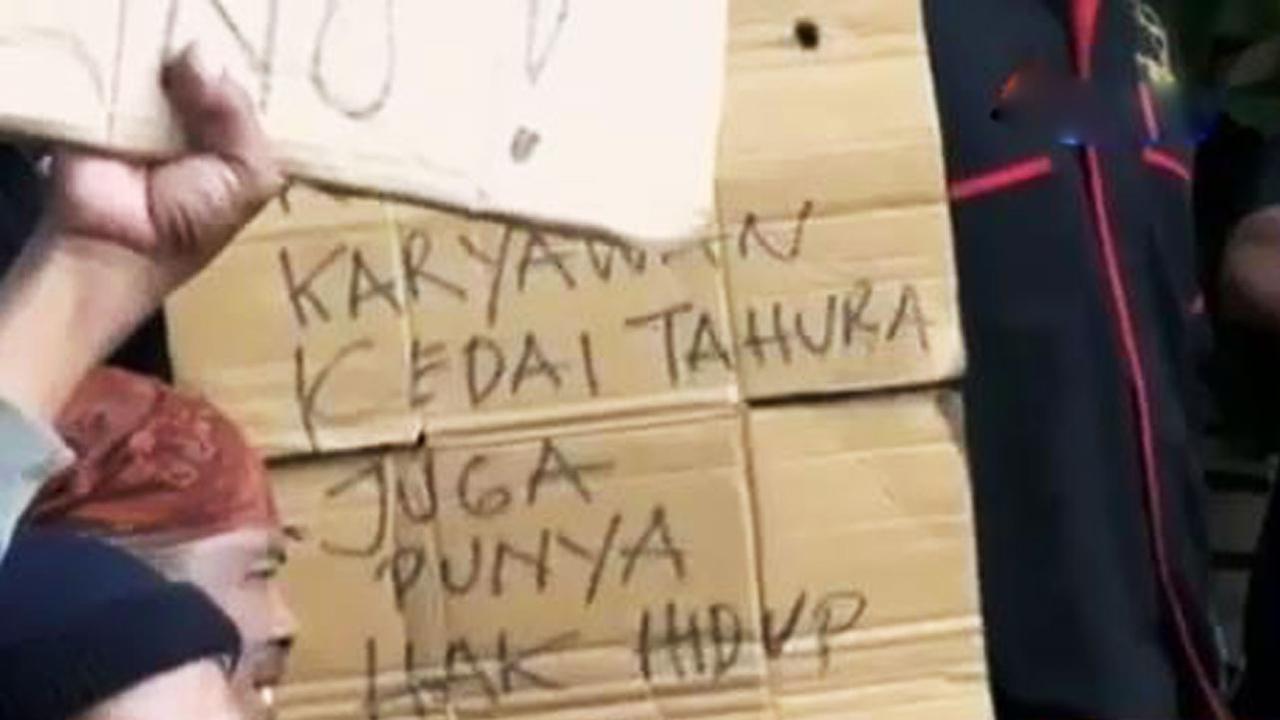 NO!
KARYAWAN
KEDAI TAHURA
JUGA
PUNYA
HAK HIDUP